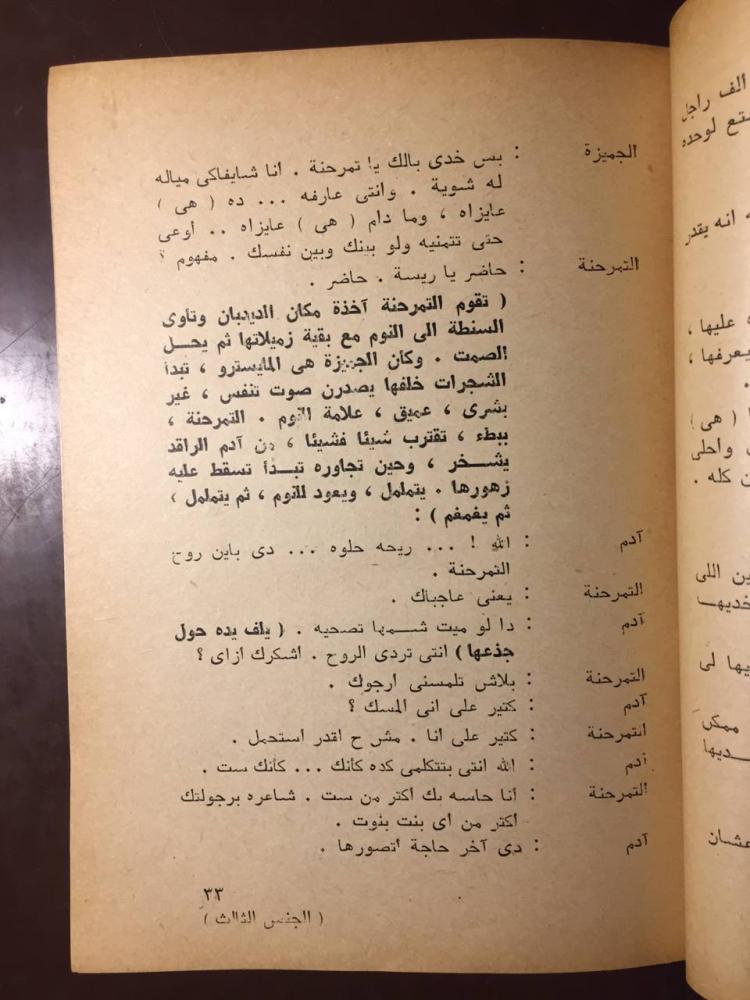 الجميزة : بس خدى بالك يا تمرحنة . انا شايفاكى مياله
له شوية . وانتى عارفه ... ده ( هى )
عايزاه ، وما دام ( هى ) عايزاه .. أوعى
حتى تتمنيه ولو بينك وبين نفسك . مفهوم ؟
التمرحنة : حاضر يا ريسة . حاضر .
( تقوم التمرحنة آخذة مكان الديدبان وتأوى
السنطة الى النوم مع بقية زميلاتها ثم يحل
الصمت . وكأن الجميزة هى المايسترو ، تبدأ
الشجرات خلفها يصدرن صوت تنفس ، غير
بشرى ، عميق ، علامة النوم . التمرحنة ،
ببطء ، تقترب شيئا فشيئا ، من آدم الراقد
يشخر ، وحين تجاوره تبدأ تسقط عليه
زهورها . يتململ ، ويعود للنوم ، ثم يتململ ،
ثم يغمغم ) :
آدم : الله ! ... ريحه حلوه ... دى باين روح
التمرحنة .
التمرحنة : يعنى عاجباك .
آدم : دا لو ميت شمها تصحيه . ( يلف يده حول
جذعها ) انتى تردى الروح . اشكرك ازاى ؟
التمرحنة : بلاش تلمسنى ارجوك .
آدم : كتير على انى المسك ؟
التمرحنة : كتير على انا . مش ح اقدر استحمل .
آدم : الله انتى بتتكلمى كده كأنك ... كأنك ست .
التمرحنة : أنا حاسه بك اكتر من ست . شاعره برجولتك
اكتر من اى بنت بنوت .
آدم : دى آخر حاجة اتصورها .
٣٣
( الجنس الثالث )
ألف راجل
لوحده
انه يقدر
عليها ،
يعرفها ،
( هى )
واحلى
كله .
اللى
لى
ممكن
عشان